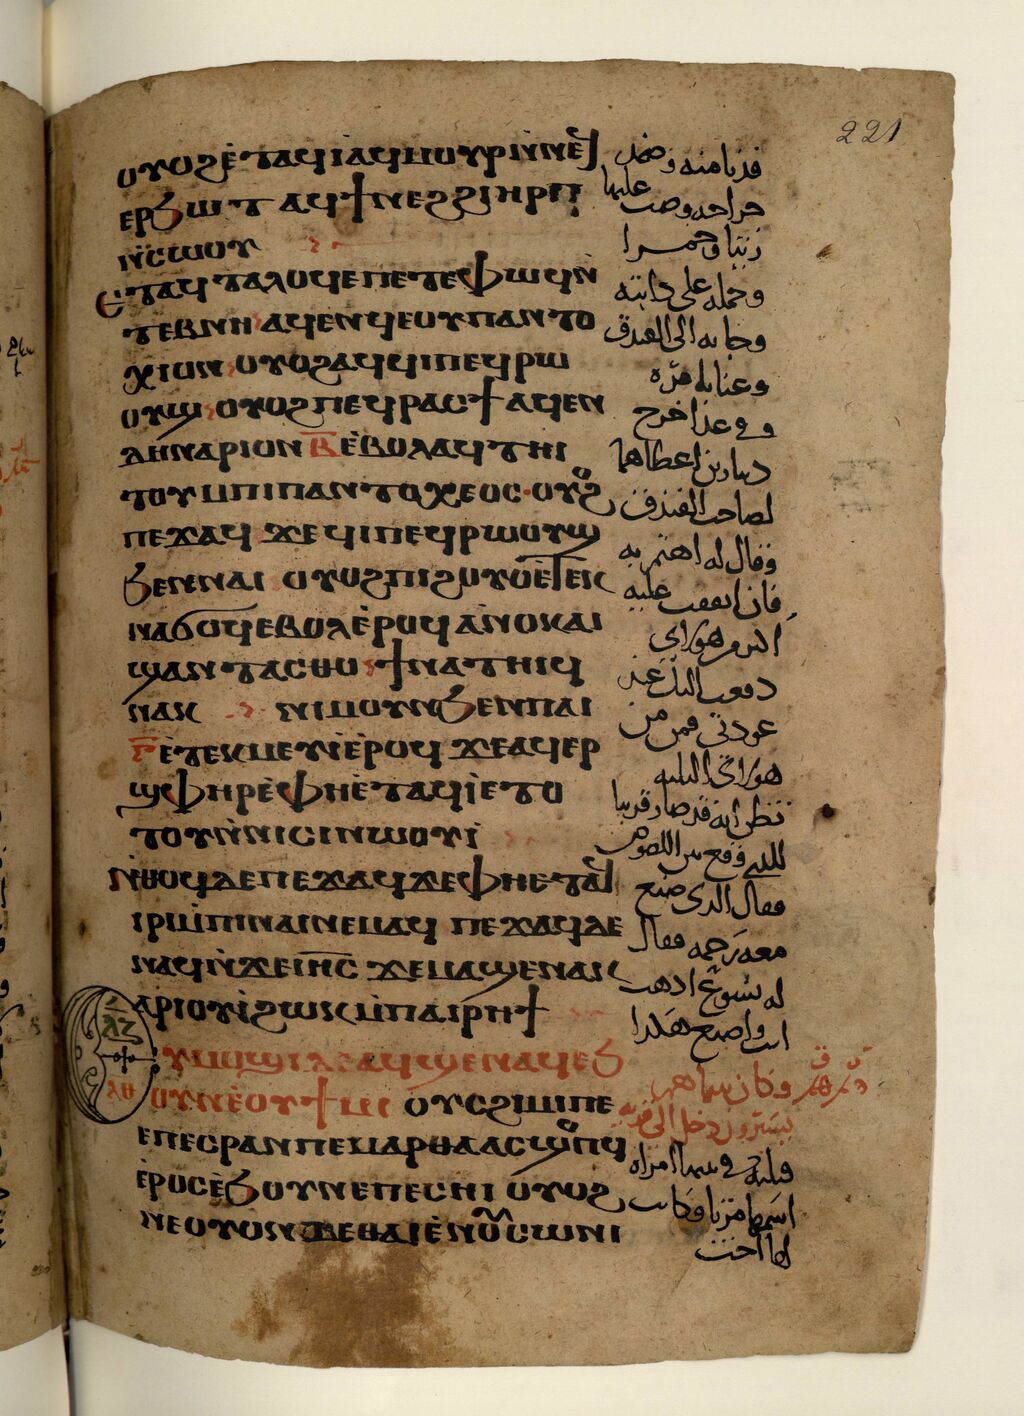 221
ⲟⲩⲟϩ ⲉ̀ⲧⲁϥⲓ̀ ⲁϥⲙⲟⲩⲣ ⲛ̀ⲛⲉϥ
ⲉⲣϧⲱⲧ ⲁϥϯ ⲛⲉϩ ϩⲓ ⲏⲣⲡ
ⲛ̀ⲥⲱⲟⲩ
ⲉⲧⲁϥⲧⲁⲗⲟϥ ⲉⲡⲉⲧⲉⲫⲱϥ ⲛ
ⲧⲉⲃⲛⲏ ⲁϥⲉⲛϥ ⲉⲟⲩⲡⲁⲛⲧⲟ
ⲭⲓⲟⲛ ⲟⲩⲟϩ ⲁϥϥⲓ ⲡⲉϥⲣⲱ
ⲟⲩϣ ⲟⲩⲟϩ ⲡⲉϥⲣⲁⲥϯ ⲁϥⲉⲛ
ⲇⲏⲛⲁⲣⲓⲟⲛ ⲃ̅ ⲉ̀ⲃⲟⲗ ⲁϥⲧⲏⲓ
ⲧⲟⲩ ⲙⲡⲓⲡⲁⲛⲧⲟⲭⲉⲟⲥ ⲟⲩⲟϩ
ⲡⲉϫⲁϥ ϫⲉ ϥⲓ ⲡⲉϥⲣⲱⲟⲩϣ
ϧⲉⲛ ⲛⲁⲓ ⲟⲩⲟϩ ⲡⲓϩⲟⲩⲟ ⲉ̀ⲧⲉⲕ
ⲛⲁϭⲟϥ ⲉⲃⲟⲗ ⲉ̀ⲣⲟϥ ⲁⲛⲟⲕ ⲁⲓ
ϣⲁⲛⲧⲁⲥⲑⲟ ϯⲛⲁⲧⲏⲓϥ
ⲛⲁⲕ ⲛⲓⲙ ⲟⲩⲛ ϧⲉⲛ ⲡⲁⲓ
ⲅ̅ ⲉ̀ⲧⲉⲕⲙⲉⲩⲓ̀ ⲉ̀ⲣⲟϥ ϫⲉ ⲁϥⲉⲣ
ϣⲫⲏⲣ ⲉ̀ⲫⲏ ⲉ̀ⲧⲁϥⲓ̀ ⲉⲧⲟ
ⲧⲟⲩ ⲛ̀ⲛⲓⲥⲓⲛⲱⲟⲩⲓ̀
ⲛⲑⲟϥ ⲇⲉ ⲡⲉϫⲁϥ ϫⲉ ⲫⲏ ⲉⲧⲁϥ
ⲓⲣⲓ ⲙ̀ⲡⲓⲛⲁⲓ ⲛⲉⲙⲁϥ ⲡⲉϫⲁϥ ⲇⲉ
ⲛⲁϥ ⲛ̀ϫⲉ ⲓⲏ̅ⲥ̅ ϫⲉ ⲙⲁϣⲉⲛⲁⲕ
ⲁⲣⲓⲟⲩⲓ̀ ϩⲱⲕ ⲙ̀ⲡⲁⲓⲣⲏϯ
ⲗⲍ
ⲗⲑ
ⲟⲩⲛ ⲉ̀ⲟⲩϯⲙⲓ ⲟⲩⲥϩⲓⲙⲓ ⲡⲉ
ⲉⲡⲉⲥⲣⲁⲛ ⲡⲉ ⲙⲁⲣⲑⲁ ⲁⲥϣⲟⲡϥ
ⲉ̀ⲣⲟⲥ ⲉ̀ϧⲟⲩⲛ ⲉⲡⲉⲥⲏⲓ ⲟⲩⲟϩ
ⲛⲉ ⲟⲩⲟⲛ ⲇⲉ ⲑⲁⲓ ⲉ̀ⲛⲟⲩⲥⲱⲛⲓ
قد نا منه وضمد
جراحه وصب عليها
زيتا وخمرا
وحمله على دابته
وجا به الى الفندق
وعنا بامره
وفي غد اخرج
دينارين اعطاهما
لصاحب الفندق
وقال له اهتم به
فان انفقت عليه
دفعت اليك عند
عودتي فمن من
هولاي الثلثه
تظن انه قد صار قريبا
للذي وقع بين اللصوص
فقال الذي صنع
معه رحمه فقال
له يسوع اذهب
انت واصنع هكذا
وكان بينما هم
يسيرون دخل الى قريه
اسمها مرتا وكانت
لها اخت